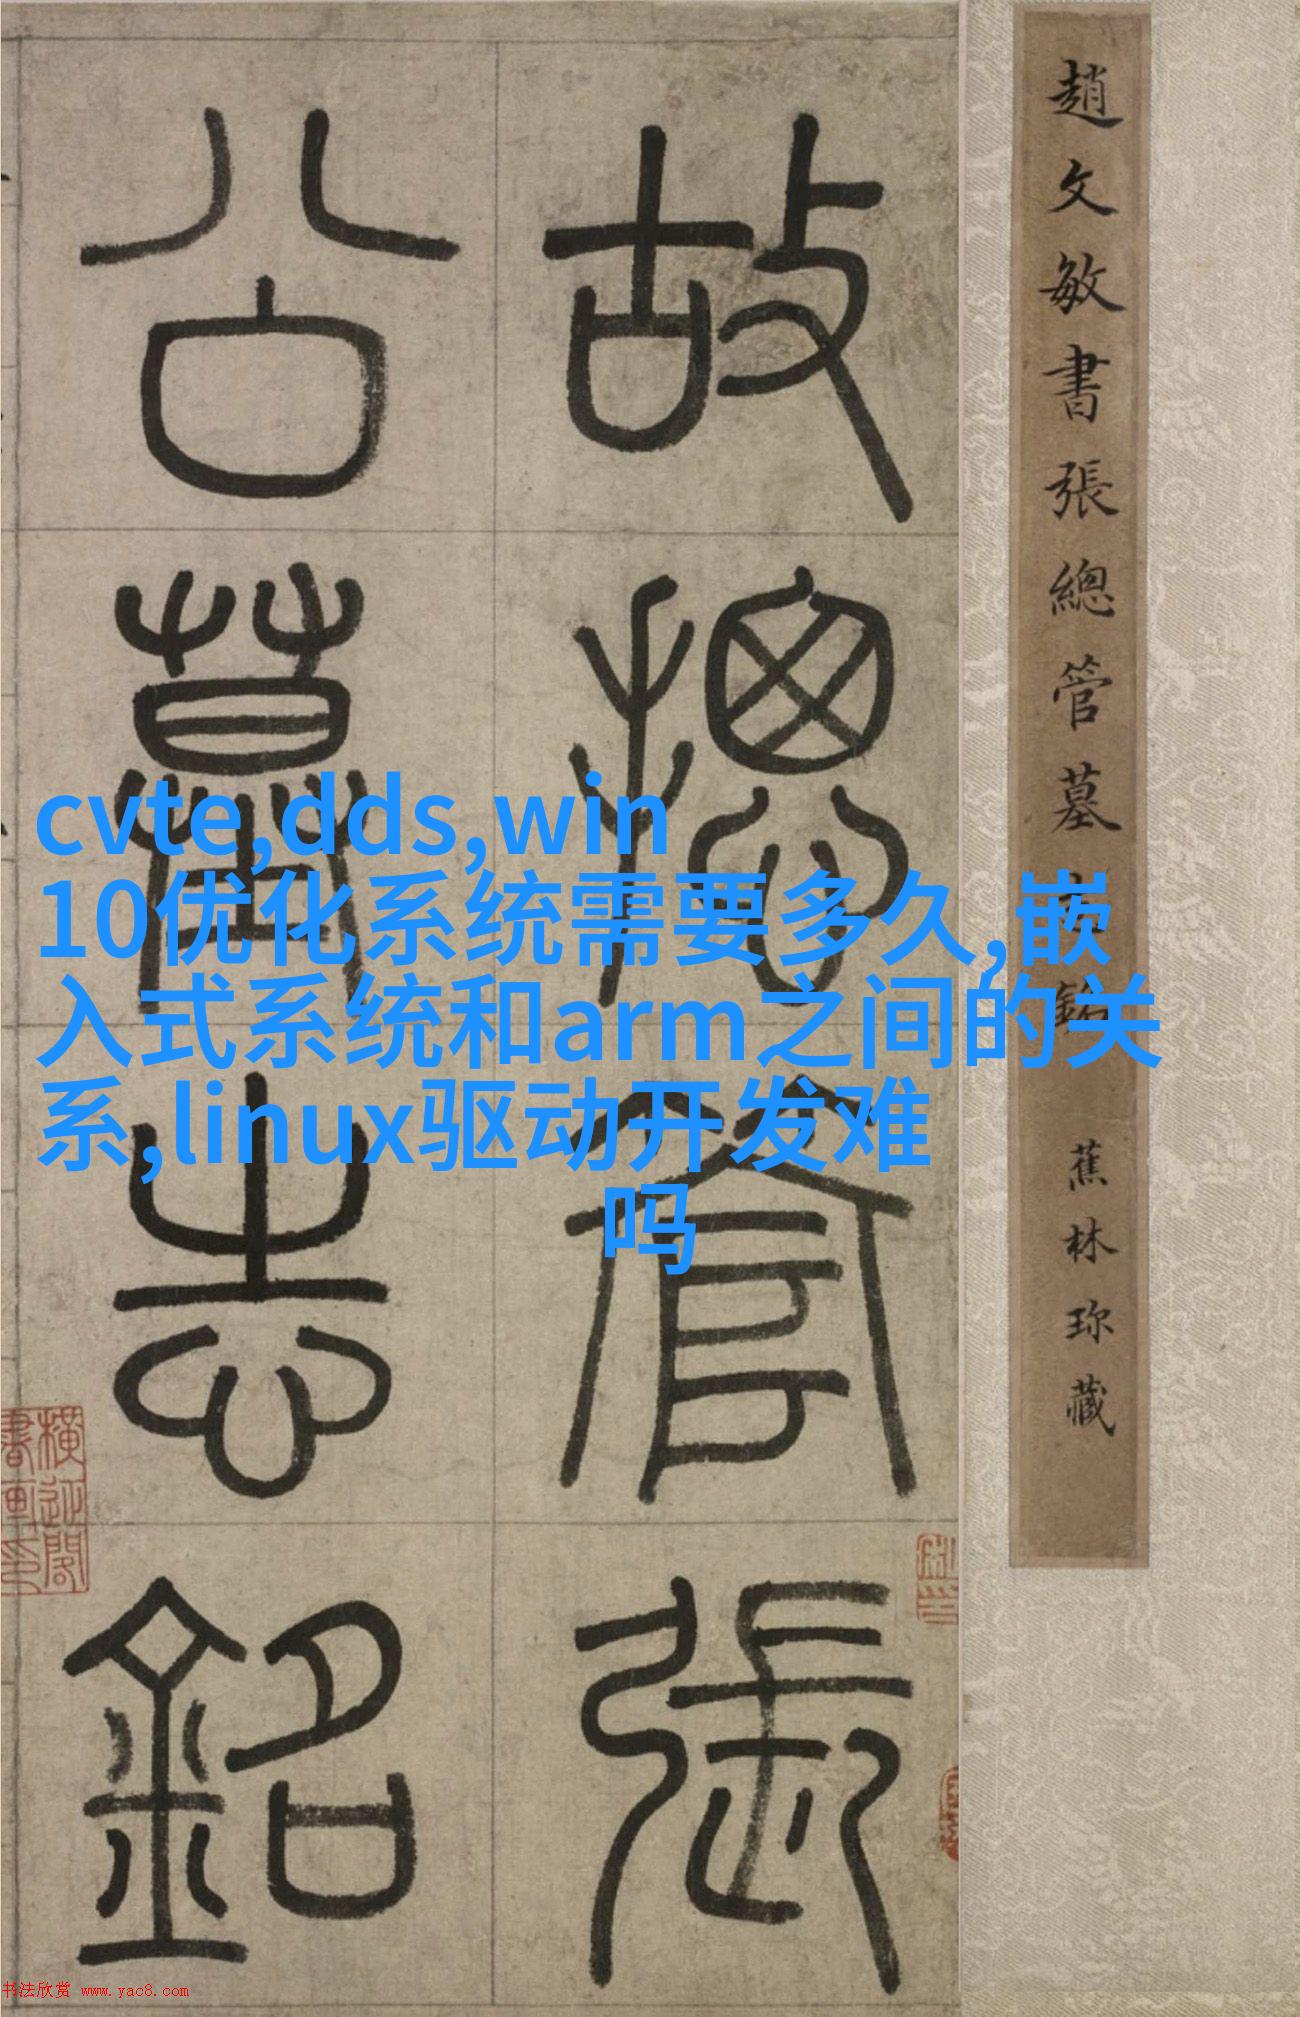 趙文敏書張總管墓誌銘 蕉林珍藏
故總管張
公墓志銘
cvte,dds,win
10优化系统需要多久,嵌
入式系统和arm之间的关
系,linux驱动开发难
吗
书法欣赏 www.yac8.com